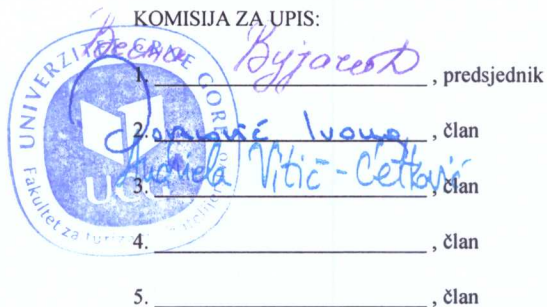 KOMISIJA ZA UPIS:
1. , predsjednik
2. Ivona , član
3. Andriela Vitić - Ćetković , član
4. , član
5. , član
UNIVERZITET CRNE GORE
Fakultet za turizam
UCG